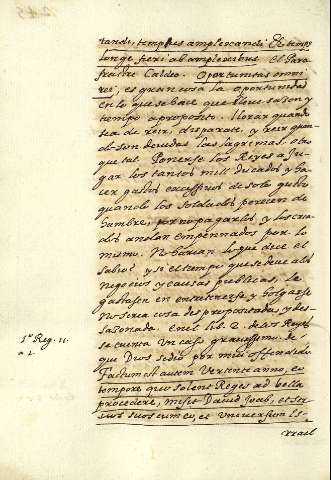 tandi, tempus amplexandi Et tempus
longe fieri ab amplexibus. el Para
fraste Caldeo. Oportunitas omni
rei, es gran cosa la oportunidad
en lo que se hace que lleue sazon y
tiempo a proposito. llorar quando
sea de reir, disparate, y reir quan
do son deuidas las lagrimas. otro
que tal. Ponerse los Reyes a Ju
gar los tantos mill ducados y ha
cer gastos excessiuos de solo gusto
quando los soldados perecen de
hambre, por no pagarlos, y los cria
dos andan empennados por lo
mismo. No harian lo que dice el
sabio? y si el tiempo que se deue a los
negocios y causas publicas, le
gastasen en entretenerse, y holgarse
no seria cosa despropositada, y des
sazonada. En el lib. 2. de los Reyes
se cuenta un caso grauissimo. de
que Dios se dio por mui offendido
Factum est autem vertente anno, eo
tempore quo solent Reges ad bella
procedere, misit Dauid Joab, et ser
uos suos cum eo, et vniuersum Is-
rrael
Reg. 11.
a 1.